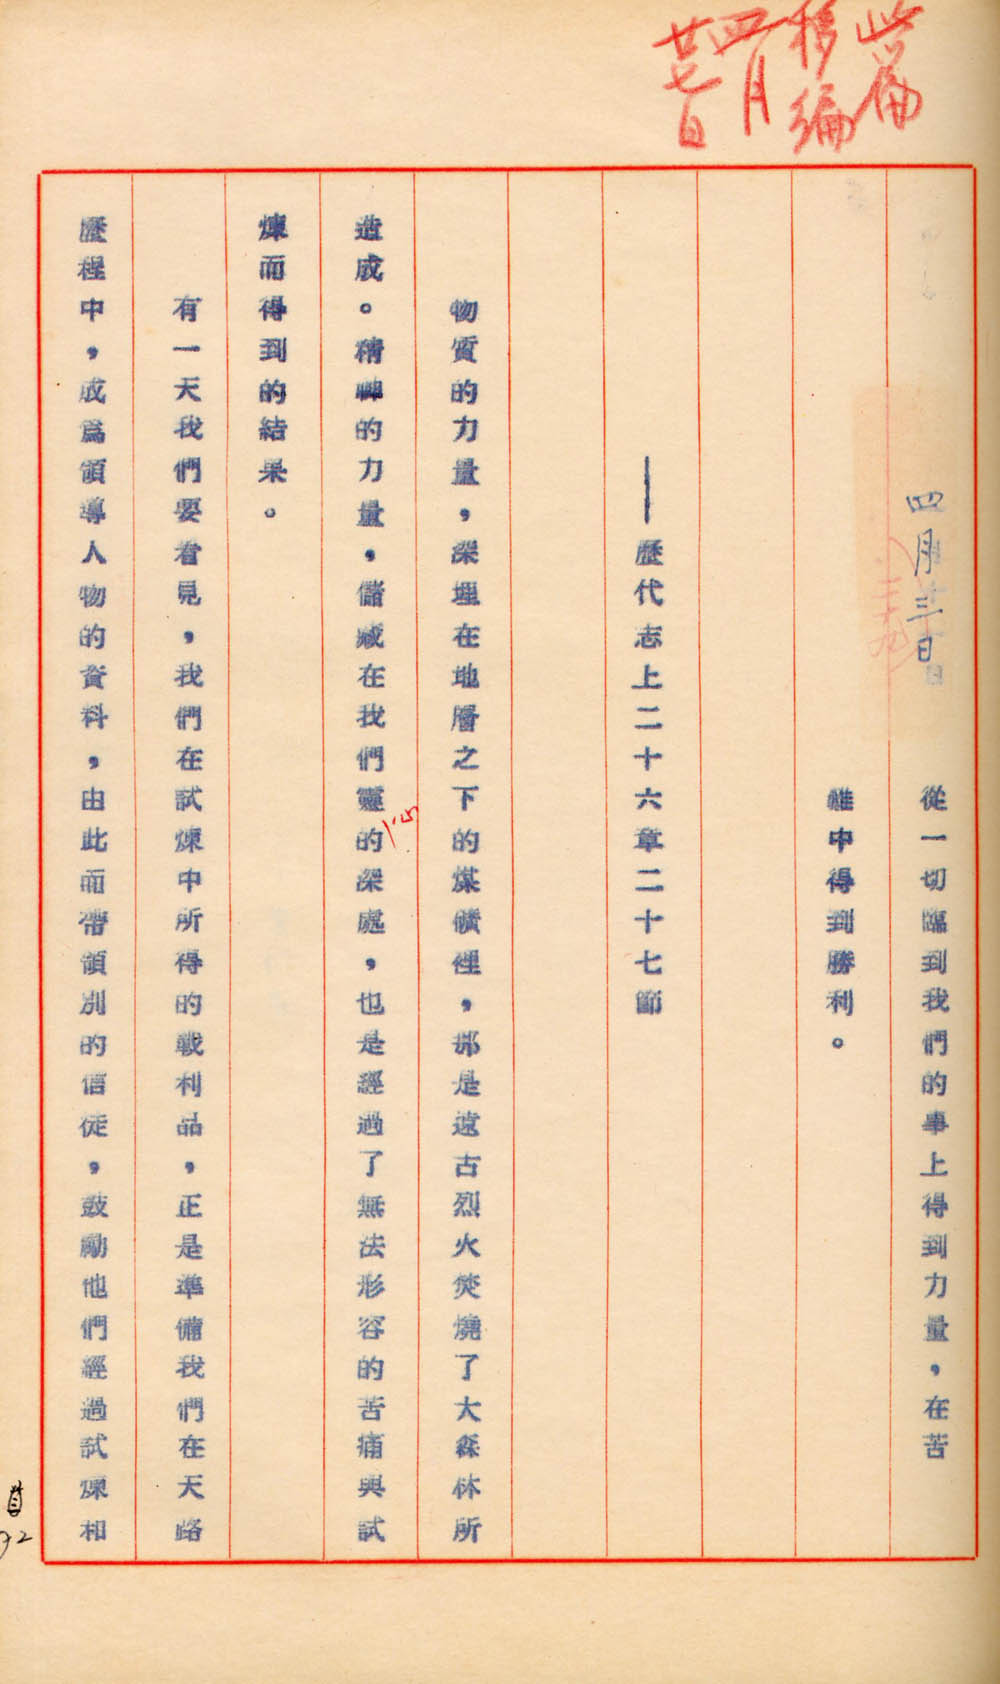 此篇
移編
四月
廿七日
四月三日
從一切臨到我們的事上得到力量，在苦
難中得到勝利。
——歷代志上二十六章二十七節
物質的力量，深埋在地層之下的煤礦裡，那是遠古烈火焚燒了大森林所
造成。精神的力量，儲藏在我們靈的深處，也是經過了無法形容的苦痛與試
心
煉而得到的結果。
有一天我們要看見，我們在試煉中所得的戰利品，正是準備我們在天路
歷程中，成爲領導人物的資料，由此而帶領別的信徒，鼓勵他們經過試煉和